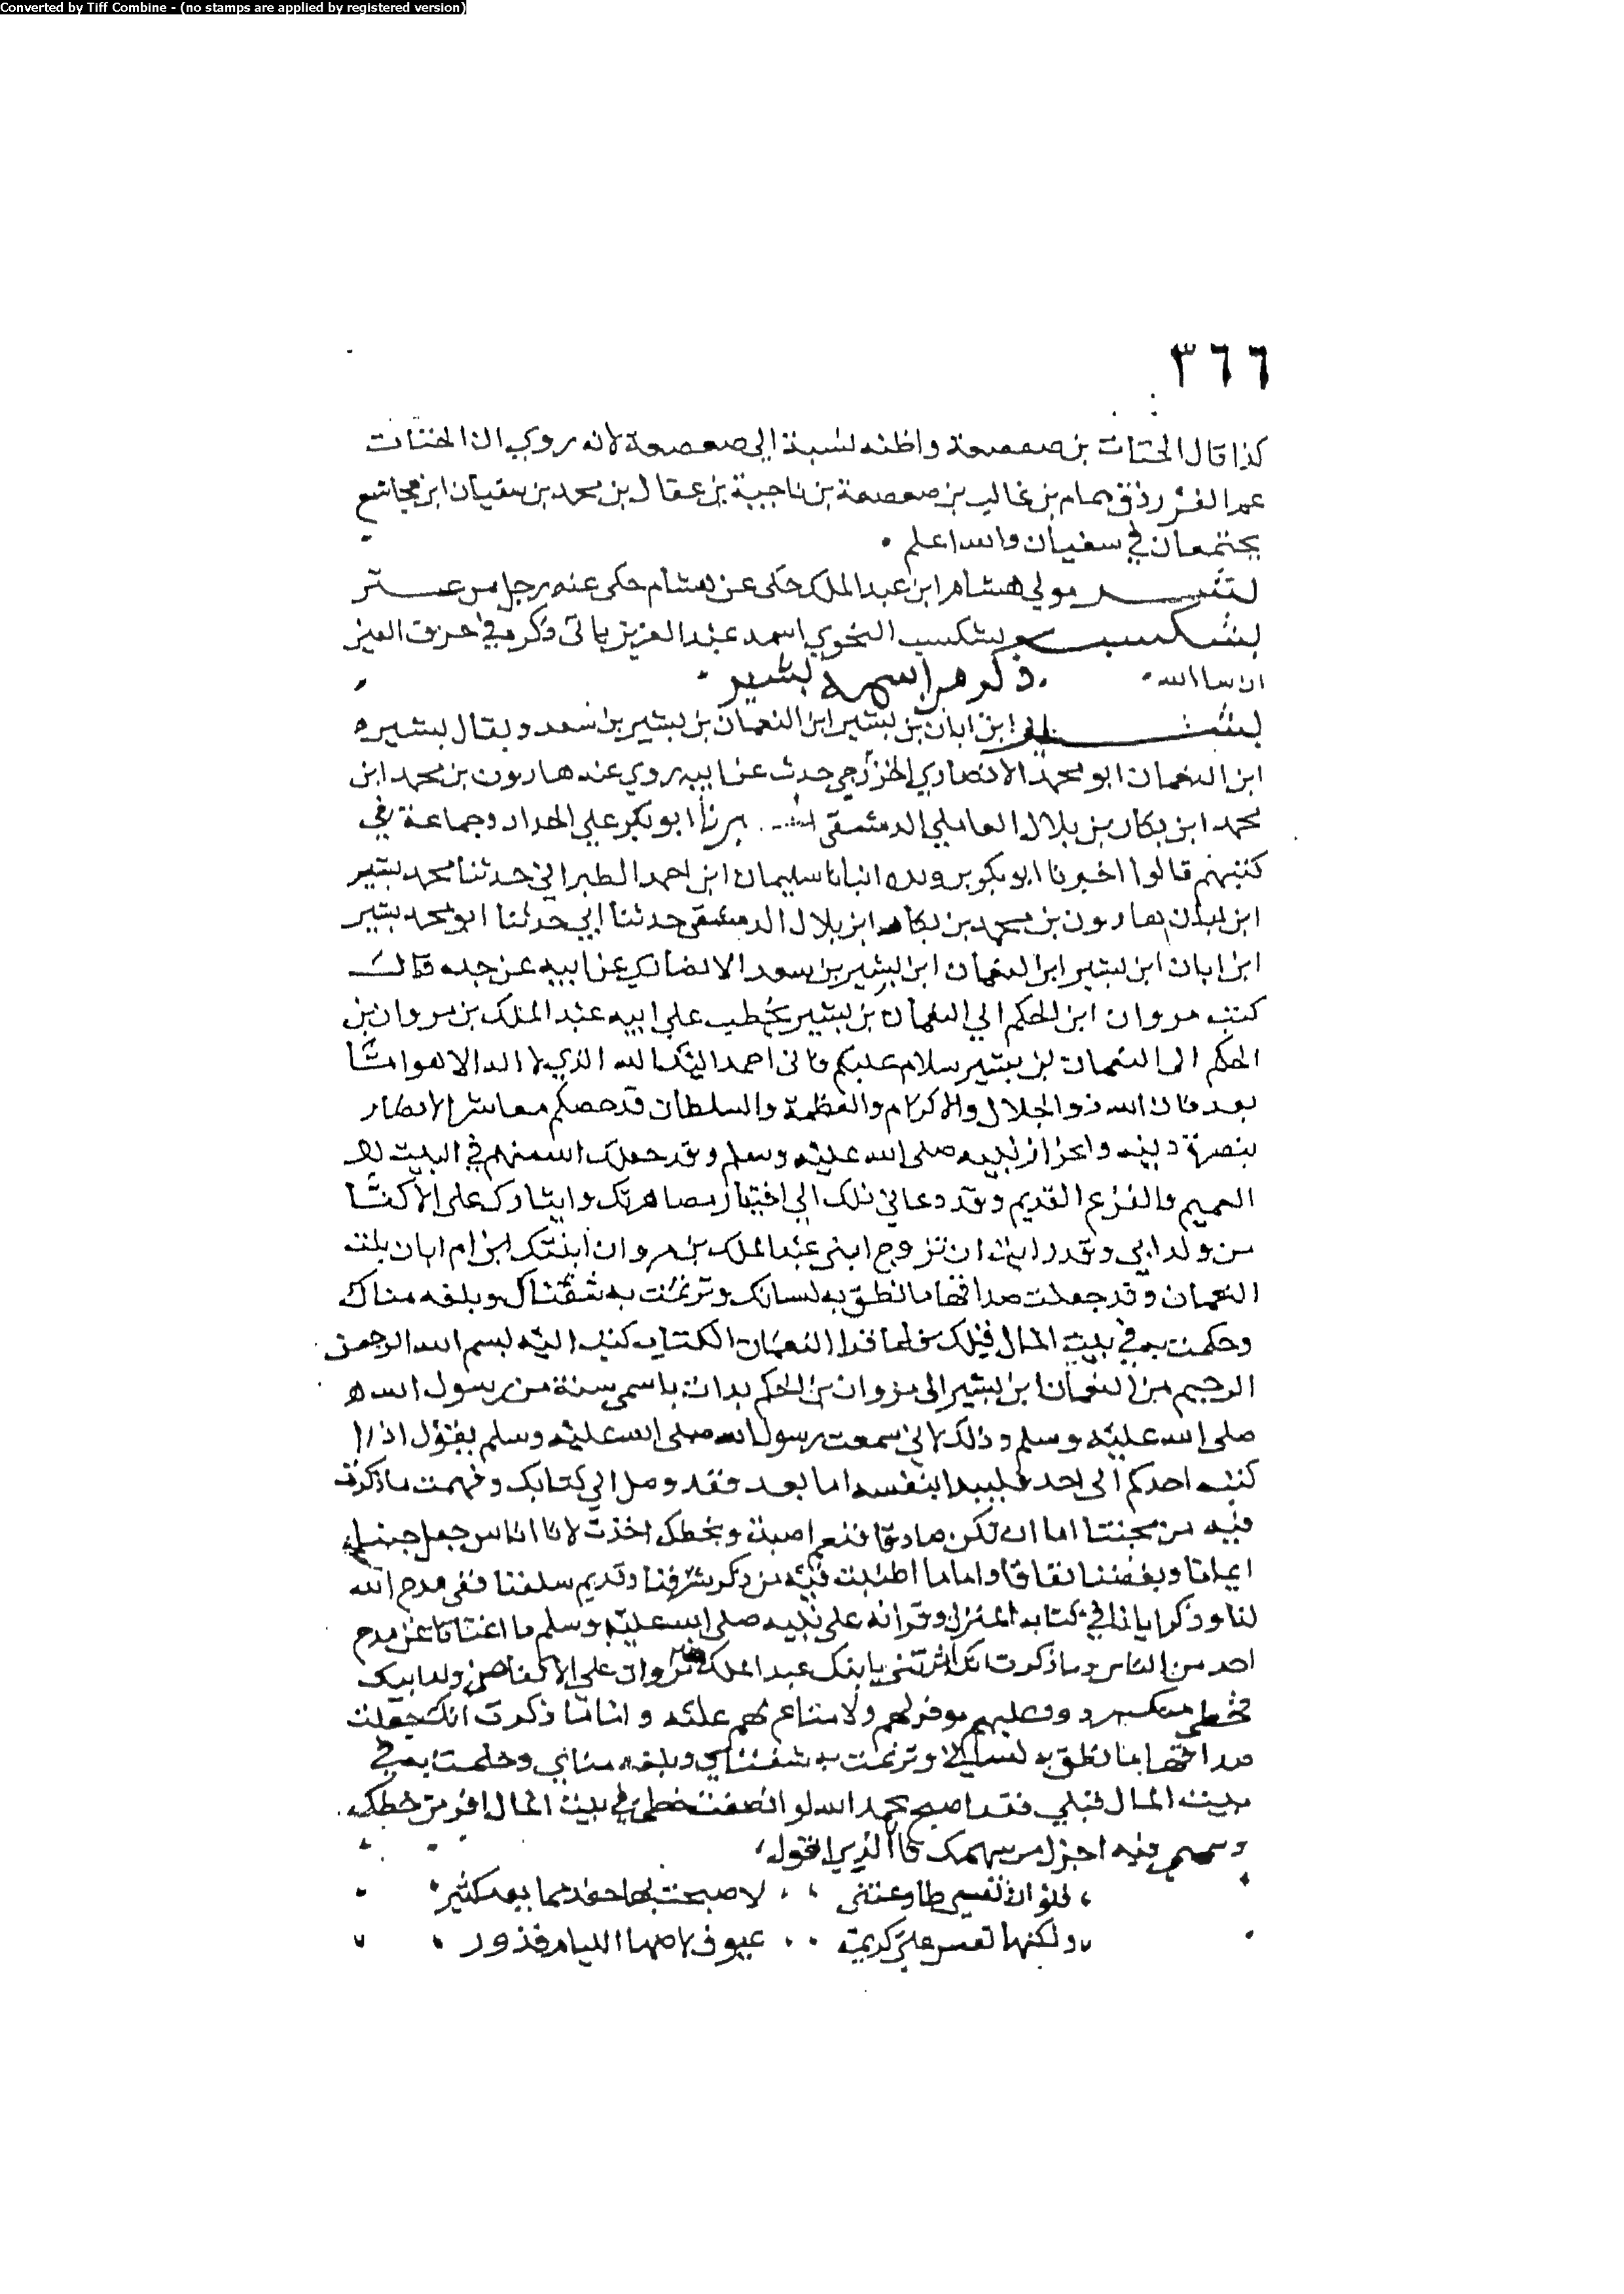 Converted by Tiff Combine - (no stamps are applied by registered version)
٣٦٦
كذا قال الحتات بن صعصعة واظنه نسبة الي صعصعة لانه روي ان الحتات
عم الفرزدق همام بن غالب بن صعصعة بن ناجية بن عقال بن محمد بن سفيان ابن مجاشع
يجتمعان في سفيان والله اعلم .
مولي هشام ابن عبد الملك حكى عن هشام حكى عنه رجل من
بشكسب بشكسب النحوي اسمه عبد العزيز ياتى ذكره في حرف العين
ان شا الله . ذكر من اسمه بشير .
بشير ابن ابان بن بشير ابن النعمان بن بشير بن سعد ويقال بشير
ابن النعمان ابو محمد الانصاري الخزرجي حدث عن ابيه روي عنه هارون بن محمد ابن
محمد ابن بكار بن بلال العاملي الدمشقى ابو علي الحداد وجماعة في
كتبهم قالوا اخبرنا ابو بكر بن ريده انبانا سليمان ابن احمد الطبراني حدثنا محمد بشير
ابن ابان هارون بن محمد بن بكار ابن بلال الدمشقى حدثنا ابي حدثنا ابو محمد بشير
ابن ابان ابن بشير ابن النعمان ابن بشير بن سعد الانصاري عن ابيه عن جده قال
كتب مروان ابن الحكم الي النعمان بن بشير يخطب علي ابيه عبد الملك بن مروان بن
الحكم الى النعمان بن بشير سلام عليكم فانى احمد اليك الله الذي لا اله الا هو اما
بعد فان الله ذو الجلال والاكرام والعظمة والسلطان قد خصكم معاشر الانصار
بنصرة دينه واعزاز نبيه صلى الله عليه وسلم وقد جعلك الله منهم في البيت
العميم والفرع القديم وقد دعاني ذلك الي اختيار مصاهرتك وايثارك على الاكفا
من ولد ابي وقد رايت ان تزوج ابنى عبد الملك بن مروان ابنتك ابن ام ابان بنت
النعمان وقد جعلت صداقها ما نطق به لسانك وترنمت به شفتاك وبلغه مناك
وحكمت به في بيت المال قبلك فلما قرا النعمان الكتاب كتب اليه بسم الله الرحمن
الرحيم من النعمان ابن بشير الى مروان بن الحكم بدات باسمي سنة من رسول الله
صلى الله عليه وسلم وذلك لاني سمعت رسول الله صلى الله عليه وسلم يقول اذا
كتب احدكم الى احد فليبدا بنفسه اما بعد فقد وصل الي كتابك وفهمت ما ذكرت
فيه من محبتنا اما ان تكن صادقا فنعم اصبت وبحظك اخذت لانا اناس جعل
ايمانا وبغضنا نفاقا واما ما اطنبت فيه من ذكر شرفنا وقديم سلفنا ففى مدح الله
لنا وذكر ايانا في كتابه المنزل وقرانه على نبيه صلى الله عليه وسلم ما اغنانا عن مدح
احد من الناس وما ذكرت انك اثرتنى بابنك عبد الملك بن مروان على الاكفا من ولد ابيك
فحظى منك مردود عليهم موفر لهم ولا متنازع لهم عليه واما ما ذكرت انك جعلت
صداقها ما نطق به لساني وترنمت به شفتاي وبلغه مناي وحكمت به في
بيت المال قبلي فقد اصبح بحمد الله لو انصفت حظى في بيت المال اوفر من حظك
وسهمى فيه اجزل من سهمك فانا الذي اقول
فلو ان نفسي طاوعتنى . . لاصبحت لها حفد مما يعد كثير
ولكنها نفس علي كريمة . . عيوف لاصهار الليام قذور